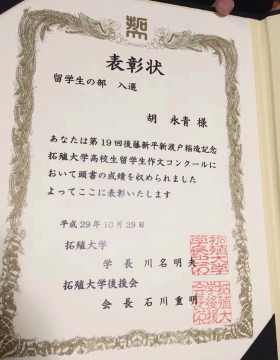 表彰状
留学生の部 入選
胡 永青 様
あなたは第19回後藤新平新渡戸稲造記念
拓殖大学高校生留学生作文コンクールに
おいて頭書の成績を収められました
よってここに表彰いたします
平成29年10月29日
拓殖大学
学長 川名明夫
拓殖大学後援会
会長 石川重明